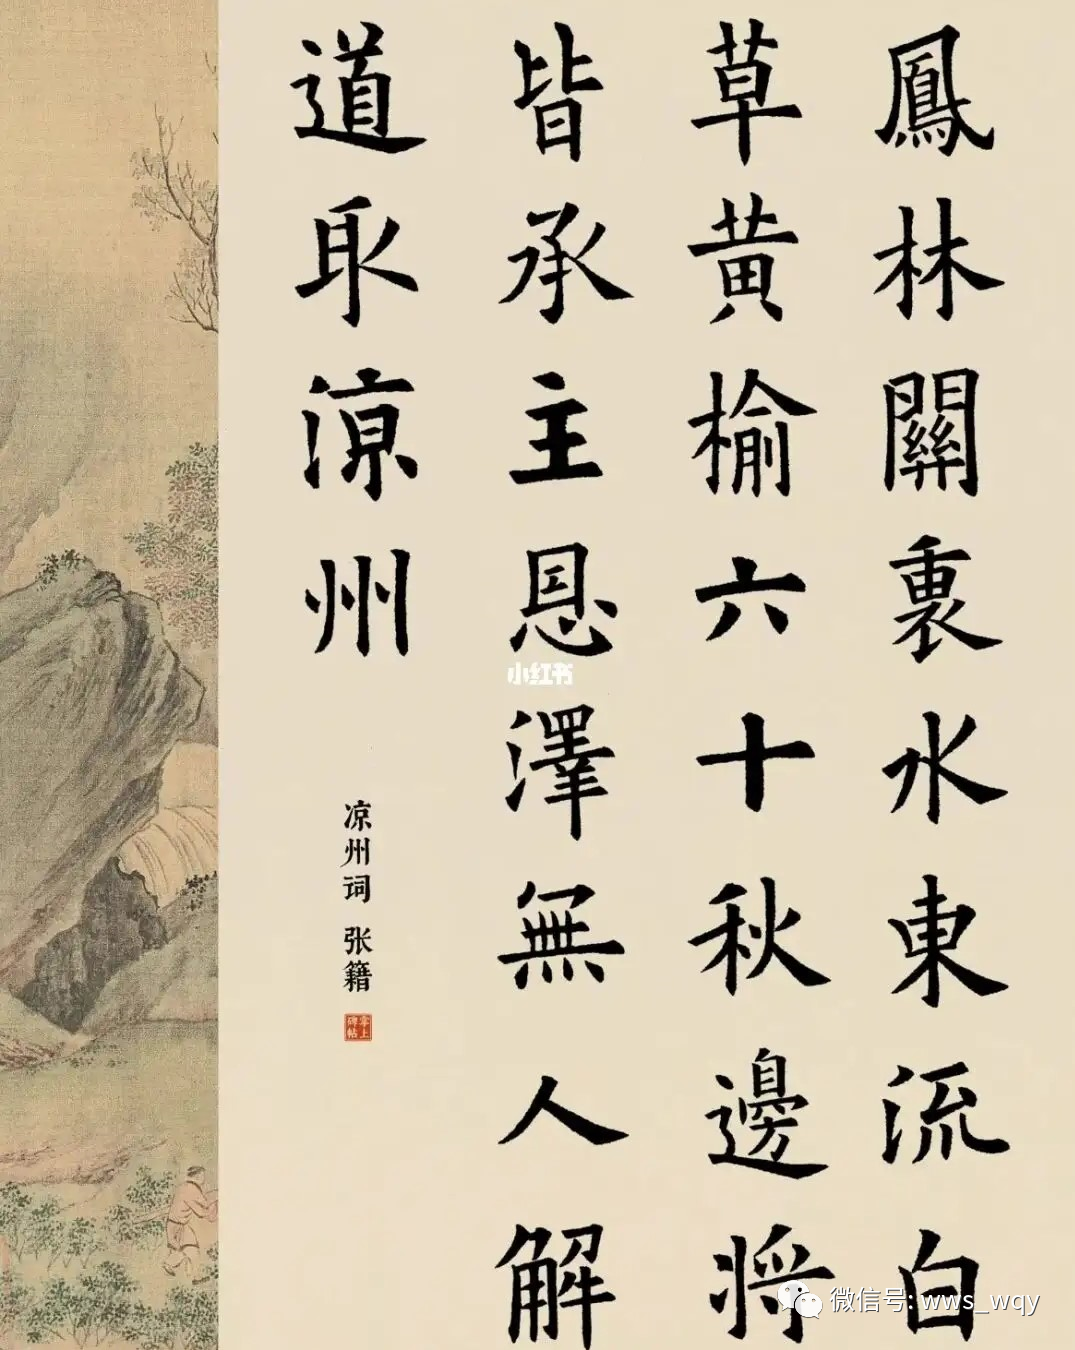 鳳林關裏水東流白
草黃榆六十秋邊將
皆承主恩澤無人解
道取涼州
凉州词 张籍
掌上碑帖
小红书
微信号: wws_wqy